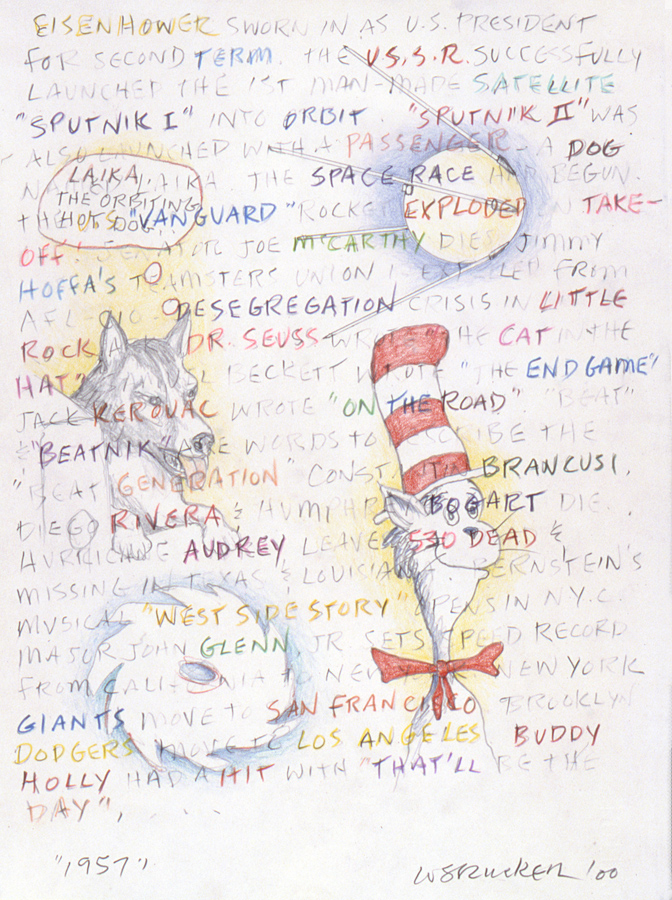 EISENHOWER SWORN IN AS U.S. PRESIDENT
FOR SECOND TERM. THE U.S.S.R. SUCCESSFULLY
LAUNCHED THE 1ST MAN-MADE SATELLITE
"SPUTNIK I" INTO ORBIT. "SPUTNIK II" WAS
ALSO LAUNCHED WITH A PASSENGER - A DOG
NAMED LAIKA. THE SPACE RACE HAD BEGUN.
LAIKA,
THE ORBITING
HOT DOG!
THE U.S. "VANGUARD" ROCKET EXPLODED ON TAKE-
OFF! SENATOR JOE McCARTHY DIES. JIMMY
HOFFA'S TEAMSTERS UNION IS EXPELLED FROM
AFL-CIO. DESEGREGATION CRISIS IN LITTLE
ROCK, DR. SEUSS WROTE "THE CAT IN THE
HAT". BECKETT WROTE "THE END GAME"
JACK KEROUAC WROTE "ON THE ROAD". "BEAT"
& "BEATNIK" ARE WORDS TO DESCRIBE THE
"BEAT GENERATION" CONSTANTIN BRANCUSI,
DIEGO RIVERA & HUMPHREY BOGART DIE.
HURRICANE AUDREY LEAVES 530 DEAD &
MISSING IN TEXAS & LOUISIANA. BERNSTEIN'S
MUSICAL "WEST SIDE STORY" OPENS IN N.Y.C.
MAJOR JOHN GLENN, JR. SETS SPEED RECORD
FROM CALIFORNIA TO NEW YORK. NEW YORK
GIANTS MOVE TO SAN FRANCISCO BROOKLYN
DODGERS MOVE TO LOS ANGELES BUDDY
HOLLY HAD A HIT WITH "THAT'LL BE THE
DAY", . . . .
"1957"
WSTRUCKER '00